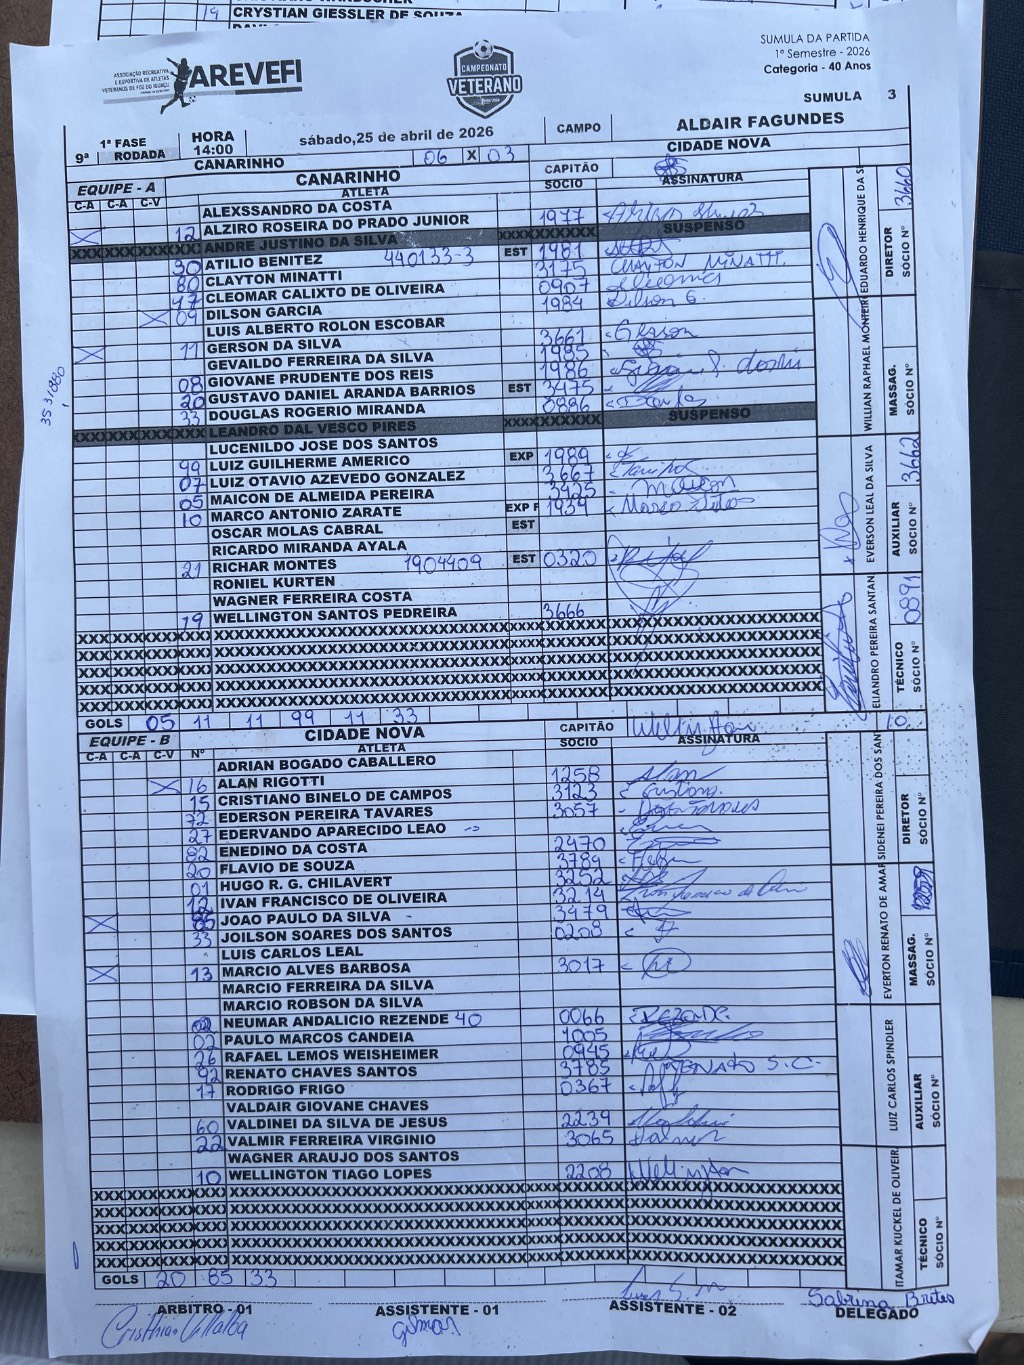 14 CRYSTIAN GIESSLER DE SOUZA
ASSOCIAÇÃO RECREATIVA
E ESPORTIVA DE ATLETAS
VETERANOS DE FOZ DO IGUAÇU
AREVEFI
CAMPEONATO
VETERANO
SUMULA DA PARTIDA
1º Semestre - 2026
Categoria - 40 Anos
SUMULA 3
9ª 1ª FASE RODADA HORA 14:00 sábado,25 de abril de 2026 CAMPO ALDAIR FAGUNDES
CANARINHO 06 X 03 CIDADE NOVA
EQUIPE - A CANARINHO CAPITÃO
C-A C-A C-V ATLETA SOCIO ASSINATURA
ALEXSSANDRO DA COSTA
12 ALZIRO ROSEIRA DO PRADO JUNIOR 1977
ANDRE JUSTINO DA SILVA SUSPENSO
30 ATILIO BENITEZ 440133-3 EST 1981
80 CLAYTON MINATTI 3175 CLAYTON MINATTI.
47 CLEOMAR CALIXTO DE OLIVEIRA 0907
09 DILSON GARCIA 1984 Dilson G.
LUIS ALBERTO ROLON ESCOBAR
11 GERSON DA SILVA 3661 Gerson
GEVAILDO FERREIRA DA SILVA 1985
08 GIOVANE PRUDENTE DOS REIS 1986
20 GUSTAVO DANIEL ARANDA BARRIOS EST 3475
33 DOUGLAS ROGERIO MIRANDA 0886
LEANDRO DAL VESCO PIRES SUSPENSO
LUCENILDO JOSE DOS SANTOS
99 LUIZ GUILHERME AMERICO EXP 1989
07 LUIZ OTAVIO AZEVEDO GONZALEZ 3667
05 MAICON DE ALMEIDA PEREIRA 3425 Maicon
10 MARCO ANTONIO ZARATE EXP F 1939 Marco Zarate
OSCAR MOLAS CABRAL EST
RICARDO MIRANDA AYALA
21 RICHAR MONTES 1904409 EST 0320
RONIEL KURTEN
WAGNER FERREIRA COSTA
19 WELLINGTON SANTOS PEDREIRA 3666
EDUARDO HENRIQUE DA S
DIRETOR
SÓCIO Nº 3660
WILLIAN RAPHAEL MONTEIR
MASSAG.
SÓCIO Nº
EVERSON LEAL DA SILVA
AUXILIAR
SÓCIO Nº 3662
ELIANDRO PEREIRA SANTAN
TÉCNICO
SÓCIO Nº 0891
353/1880
GOLS 05 11 11 99 11 33
EQUIPE - B CIDADE NOVA CAPITÃO Wellington 10
C-A C-A C-V Nº ATLETA SOCIO ASSINATURA
ADRIAN BOGADO CABALLERO
16 ALAN RIGOTTI 1258 Alan
15 CRISTIANO BINELO DE CAMPOS 3123 Cristiano.
72 EDERSON PEREIRA TAVARES 3057
27 EDERVANDO APARECIDO LEAO
82 ENEDINO DA COSTA 2470
20 FLAVIO DE SOUZA 3789
01 HUGO R. G. CHILAVERT 3252
12 IVAN FRANCISCO DE OLIVEIRA 3214
85 JOAO PAULO DA SILVA 3479
33 JOILSON SOARES DOS SANTOS 0208
LUIS CARLOS LEAL
13 MARCIO ALVES BARBOSA 3017
MARCIO FERREIRA DA SILVA
MARCIO ROBSON DA SILVA
NEUMAR ANDALICIO REZENDE 40 0066 REZENDE.
02 PAULO MARCOS CANDEIA 1005
26 RAFAEL LEMOS WEISHEIMER 0945
92 RENATO CHAVES SANTOS 3785 RENATO S.C.
17 RODRIGO FRIGO 0367
VALDAIR GIOVANE CHAVES
60 VALDINEI DA SILVA DE JESUS 2239
22 VALMIR FERREIRA VIRGINIO 3065 Valmir
WAGNER ARAUJO DOS SANTOS
10 WELLINGTON TIAGO LOPES 2208 Wellington
SIDENEI PEREIRA DOS SAN
DIRETOR
SÓCIO Nº
EVERTON RENATO DE AMAR
MASSAG.
SÓCIO Nº
LUIZ CARLOS SPINDLER
AUXILIAR
SÓCIO Nº
ITAMAR KUCKEL DE OLIVEIR
TÉCNICO
SÓCIO Nº
GOLS 20 85 33
ARBITRO - 01 ASSISTENTE - 01 ASSISTENTE - 02 DELEGADO
Cristhian Villalba Gilmar Sabrina Brites